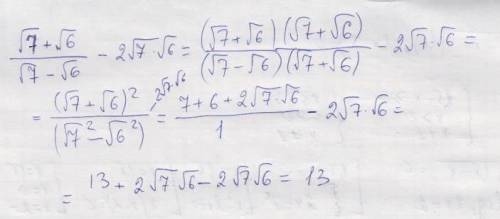 (√7 + √6)/(√7 − √6) − 2√7·√6 = ((√7 + √6)(√7 + √6))/((√7 − √6)(√7 + √6)) − 2√7·√6 =
= (√7 + √6)²/(√7² − √6²) − 2√7·√6 = (7 + 6 + 2√7·√6)/1 − 2√7·√6 =
= 13 + 2√7√6 − 2√7√6 = 13